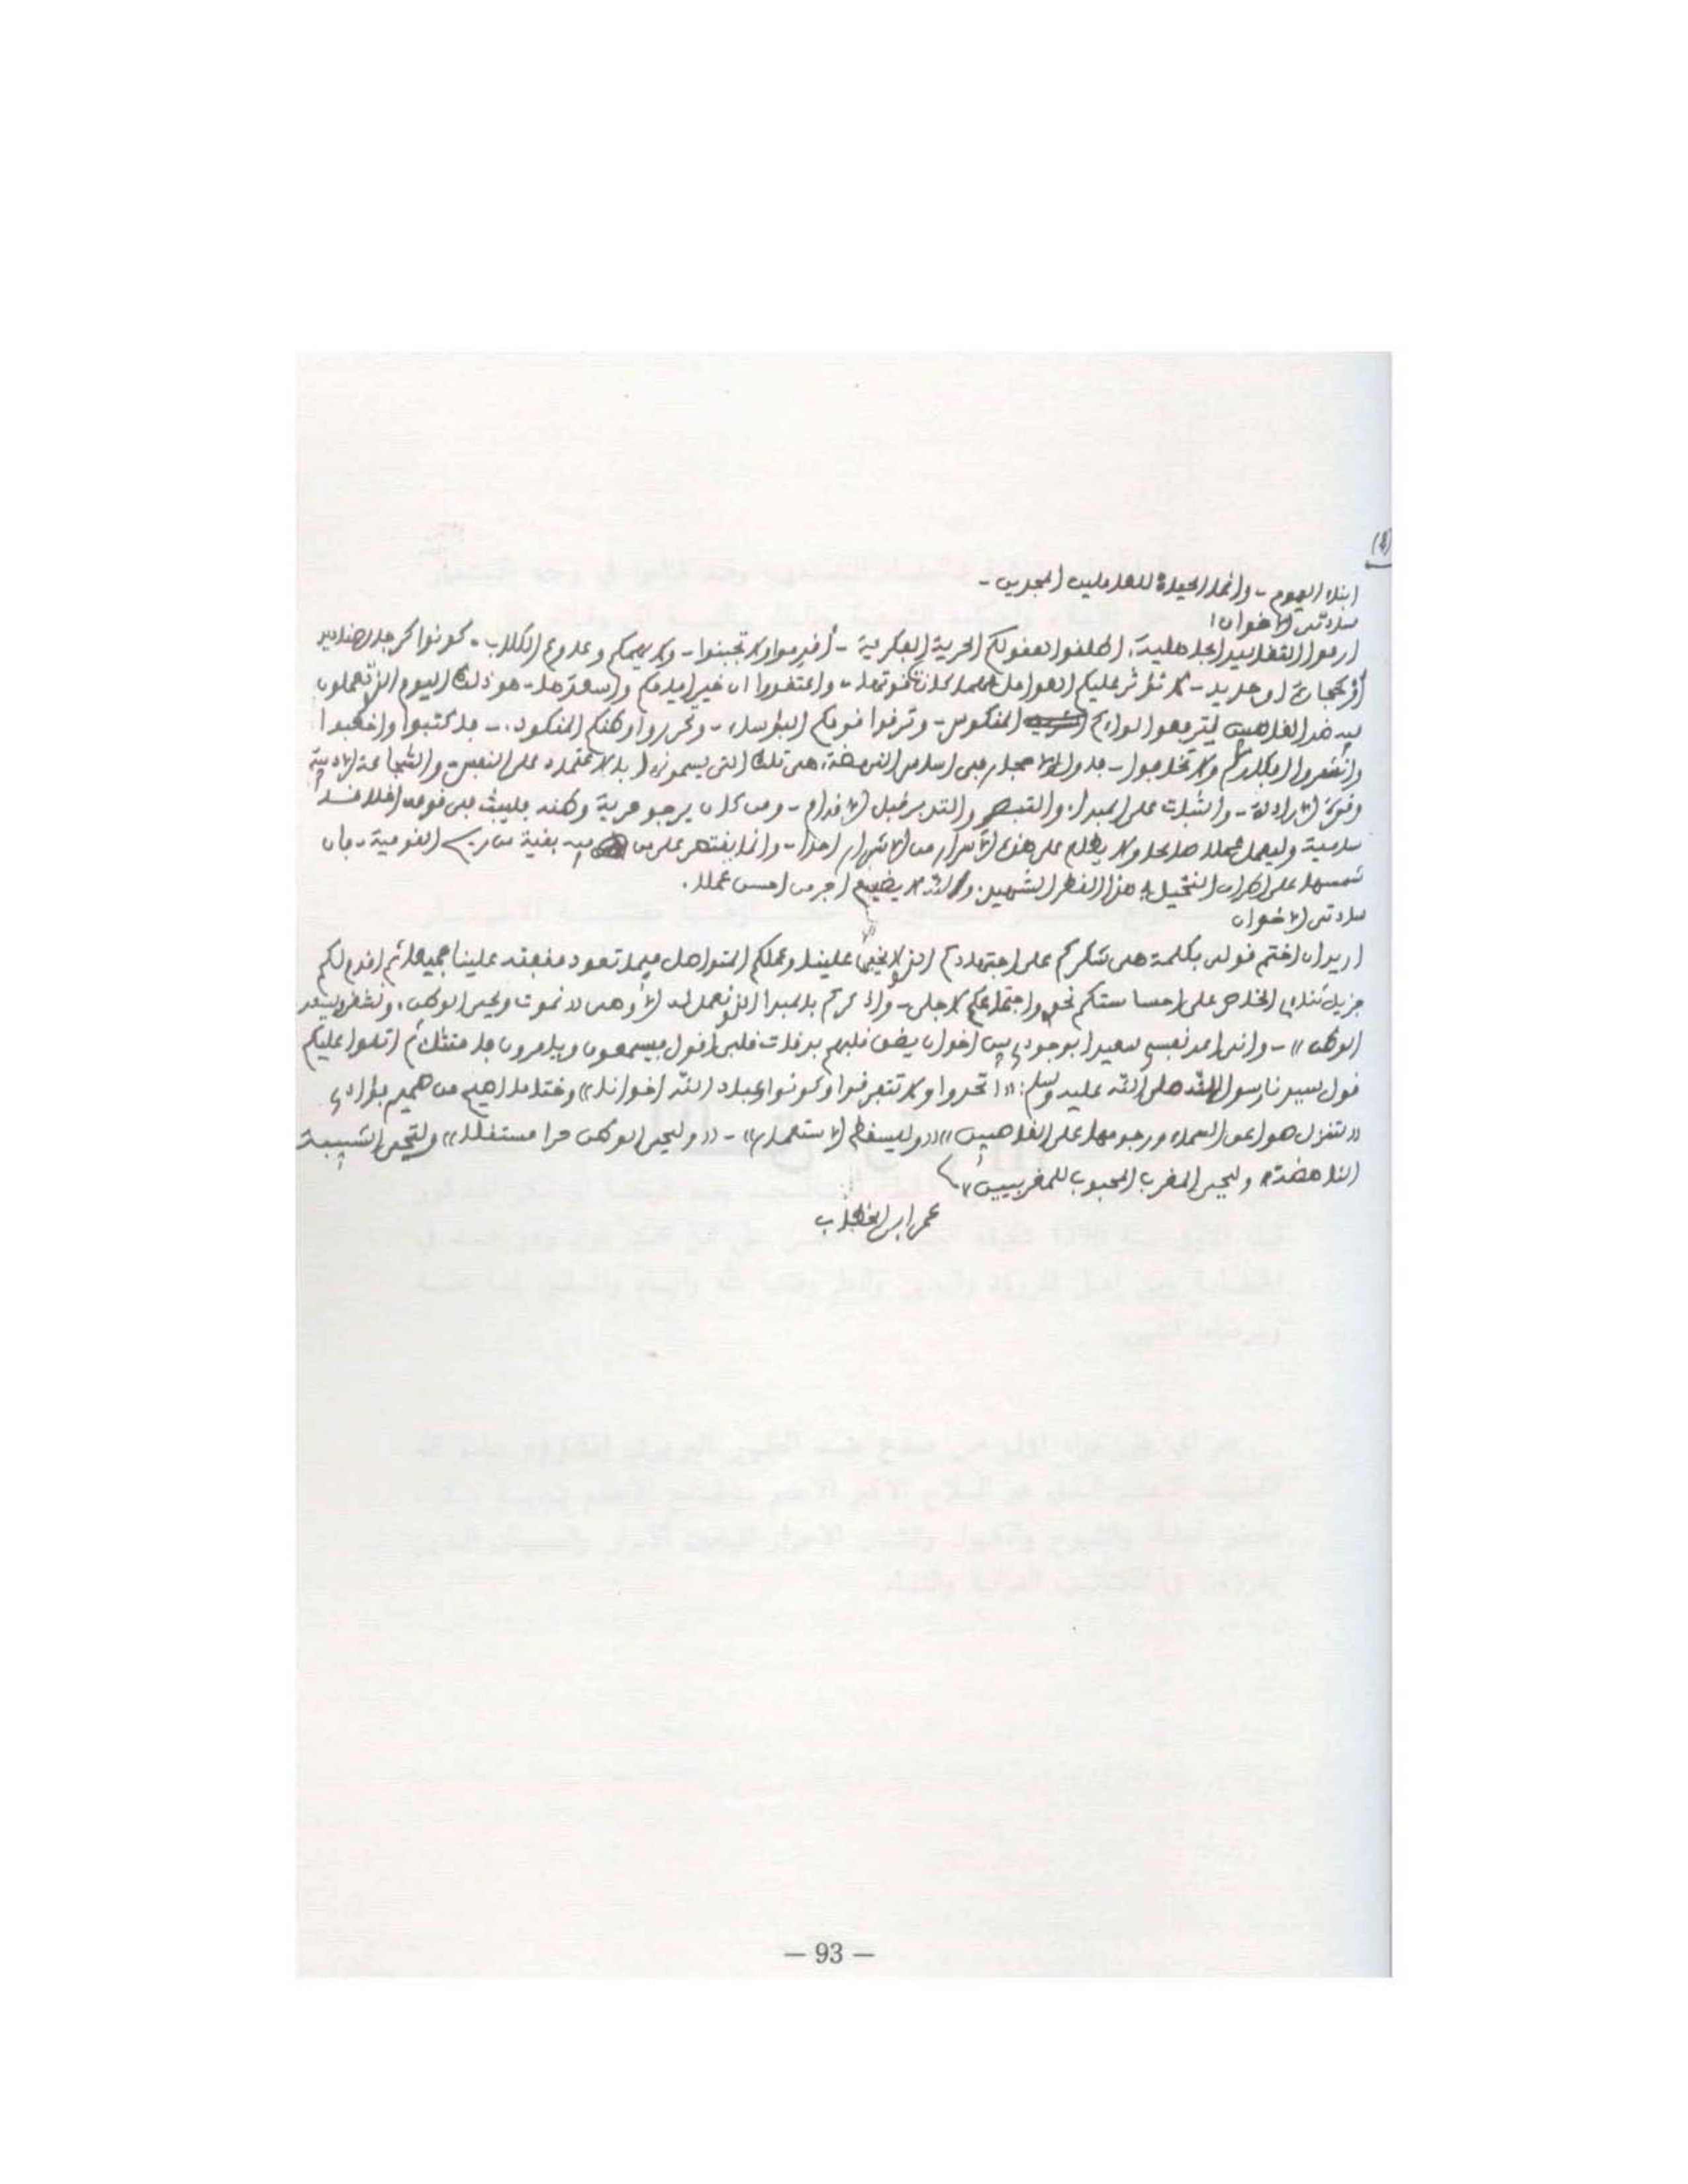 (8)
ابناء اليوم - وانما الحياة للعاملين المجدين -
سادتي الاخوان!
ارموا التقاليد الجاهلية، اطلقوا لعقولكم الحرية الفكرية - أقدموا ولا تجبنوا - ولا يهمكم وعاوع الكلاب - كونوا كرجال صناديد
أو كحجارة او حديد - لا تؤثر عليكم العوامل مهما كانت قوتها - واعتقدوا ان خير ايامكم واسعدها - هو ذلك اليوم الذي تعملون
فيه ضد الغاصبين لترفعوا لواءكم المنكوس - وترقوا قومكم البؤساء - وتحرروا وطنكم المنكود. - فاكتبوا واخطبوا
وانشروا افكاركم ولا تخافوا - فاول الاحجار في اساس النهضة، هي تلك التي يسمونها بالاعتماد على النفس والشجاعة الادبية
وقوة الارادة - والثبات على المبدإ، والتبصر والتدبر قبل الاقدام - ومن كان يرجو حرية وطنه فليبث في قومه اخلاقا
سامية وليعمل عملا صالحا ولا يطلع على هذه الاسرار من الاشرار احدا - وانما يقتصر على من فيه بقية من القومية - فان
شمسها على النخيل في هذا القطر الشهيد. والله لا يضيع اجر من احسن عملا.
سادتي الاخوان
اريد ان اختم قولي بكلمة هي شكركم على اجتهادكم الذي لا يخفى علينا وعملكم المتواصل فيما تعود منفعته علينا جميعا ثم اقدم لكم
جزيل ثنائي الخالص على احساستكم نحوي واجتماعكم لاجلي - واذكركم بالمبدإ الذي نعمل له الا وهي « نموت ويحيى الوطن، ونشقى ويسعد
الوطن » - واني اعد نفسي سعيدا بوجودي بين اخوان يضئ قلبهم بدقات قلبي اقول فيسمعون ويامرون فامتثل ثم اتلوا عليكم
قول سيدنا رسول الله صلى الله عليه وسلم: « اتحدوا ولا تتفرقوا وكونوا عباد الله اخوانا » وختاما اصيح من صميم فؤادي
« لتنزل صواعق السماء ورجومها على الغاصبين » « وليسقط الاستعمار » - « وليحي الوطن حرا مستقلا » ولتحي الشبيبة
الناهضة، وليحي المغرب المحبوب للمغربيين،
عمر ابن الخطاب
— 93 —